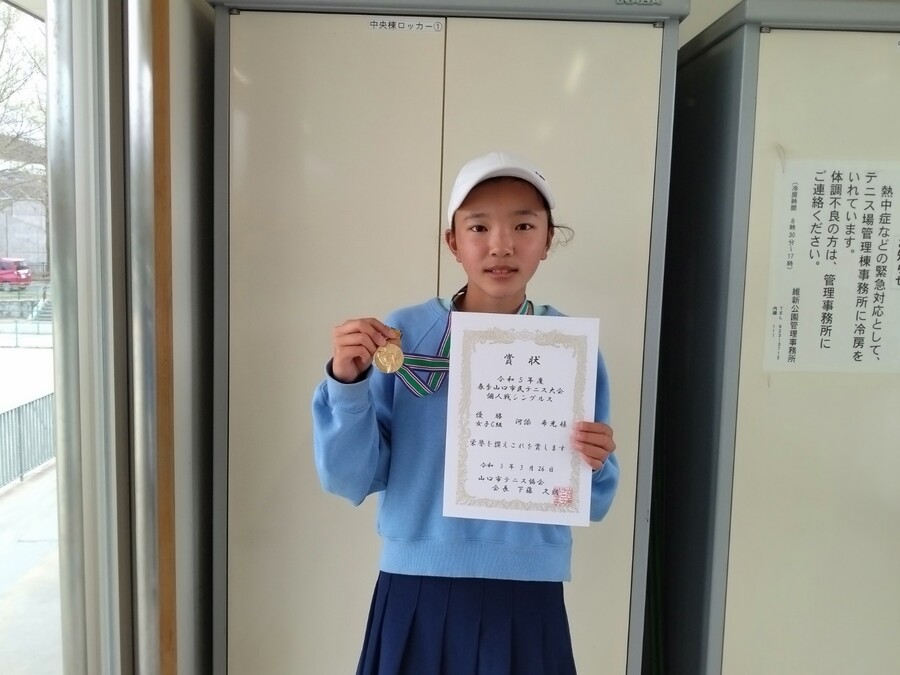 中央棟ロッカー①
賞状
令和5年度
春季山口市民テニス大会
個人戦シングルス
優勝
女子C級 河添 希光 様
栄誉を讃えこれを賞します
令和5年3月26日
山口市テニス協会
会長 下藤 文
熱中症などの緊急対応として、
テニス場管理棟事務所に冷房を
いれています。
体調不良の方は、管理事務所に
ご連絡ください。
(冷房時間 8時30分~17時)
維新公園管理事務所